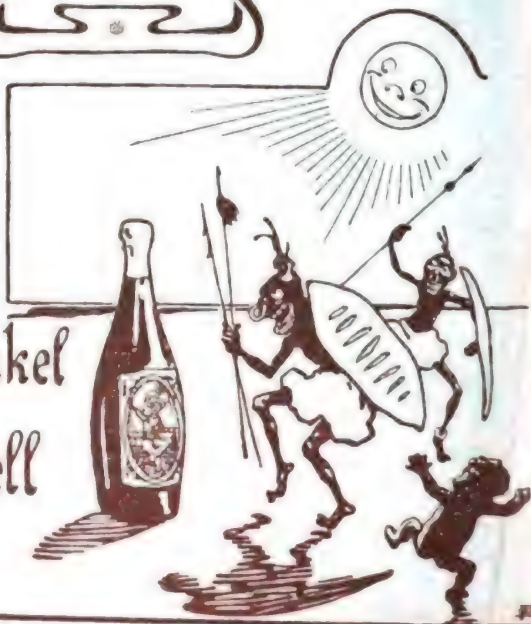 kel
ll